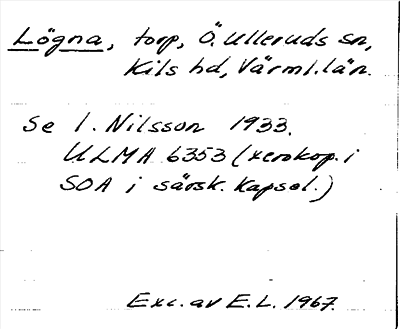 Lögna, torp, Ö. Ulleruds sn,
Kils hd, Värml. län.
Se I. Nilsson 1933.
ULMA 6353 (xerokop. i
SOA i särsk. kapsel.)
Exc. av E.L. 1967.